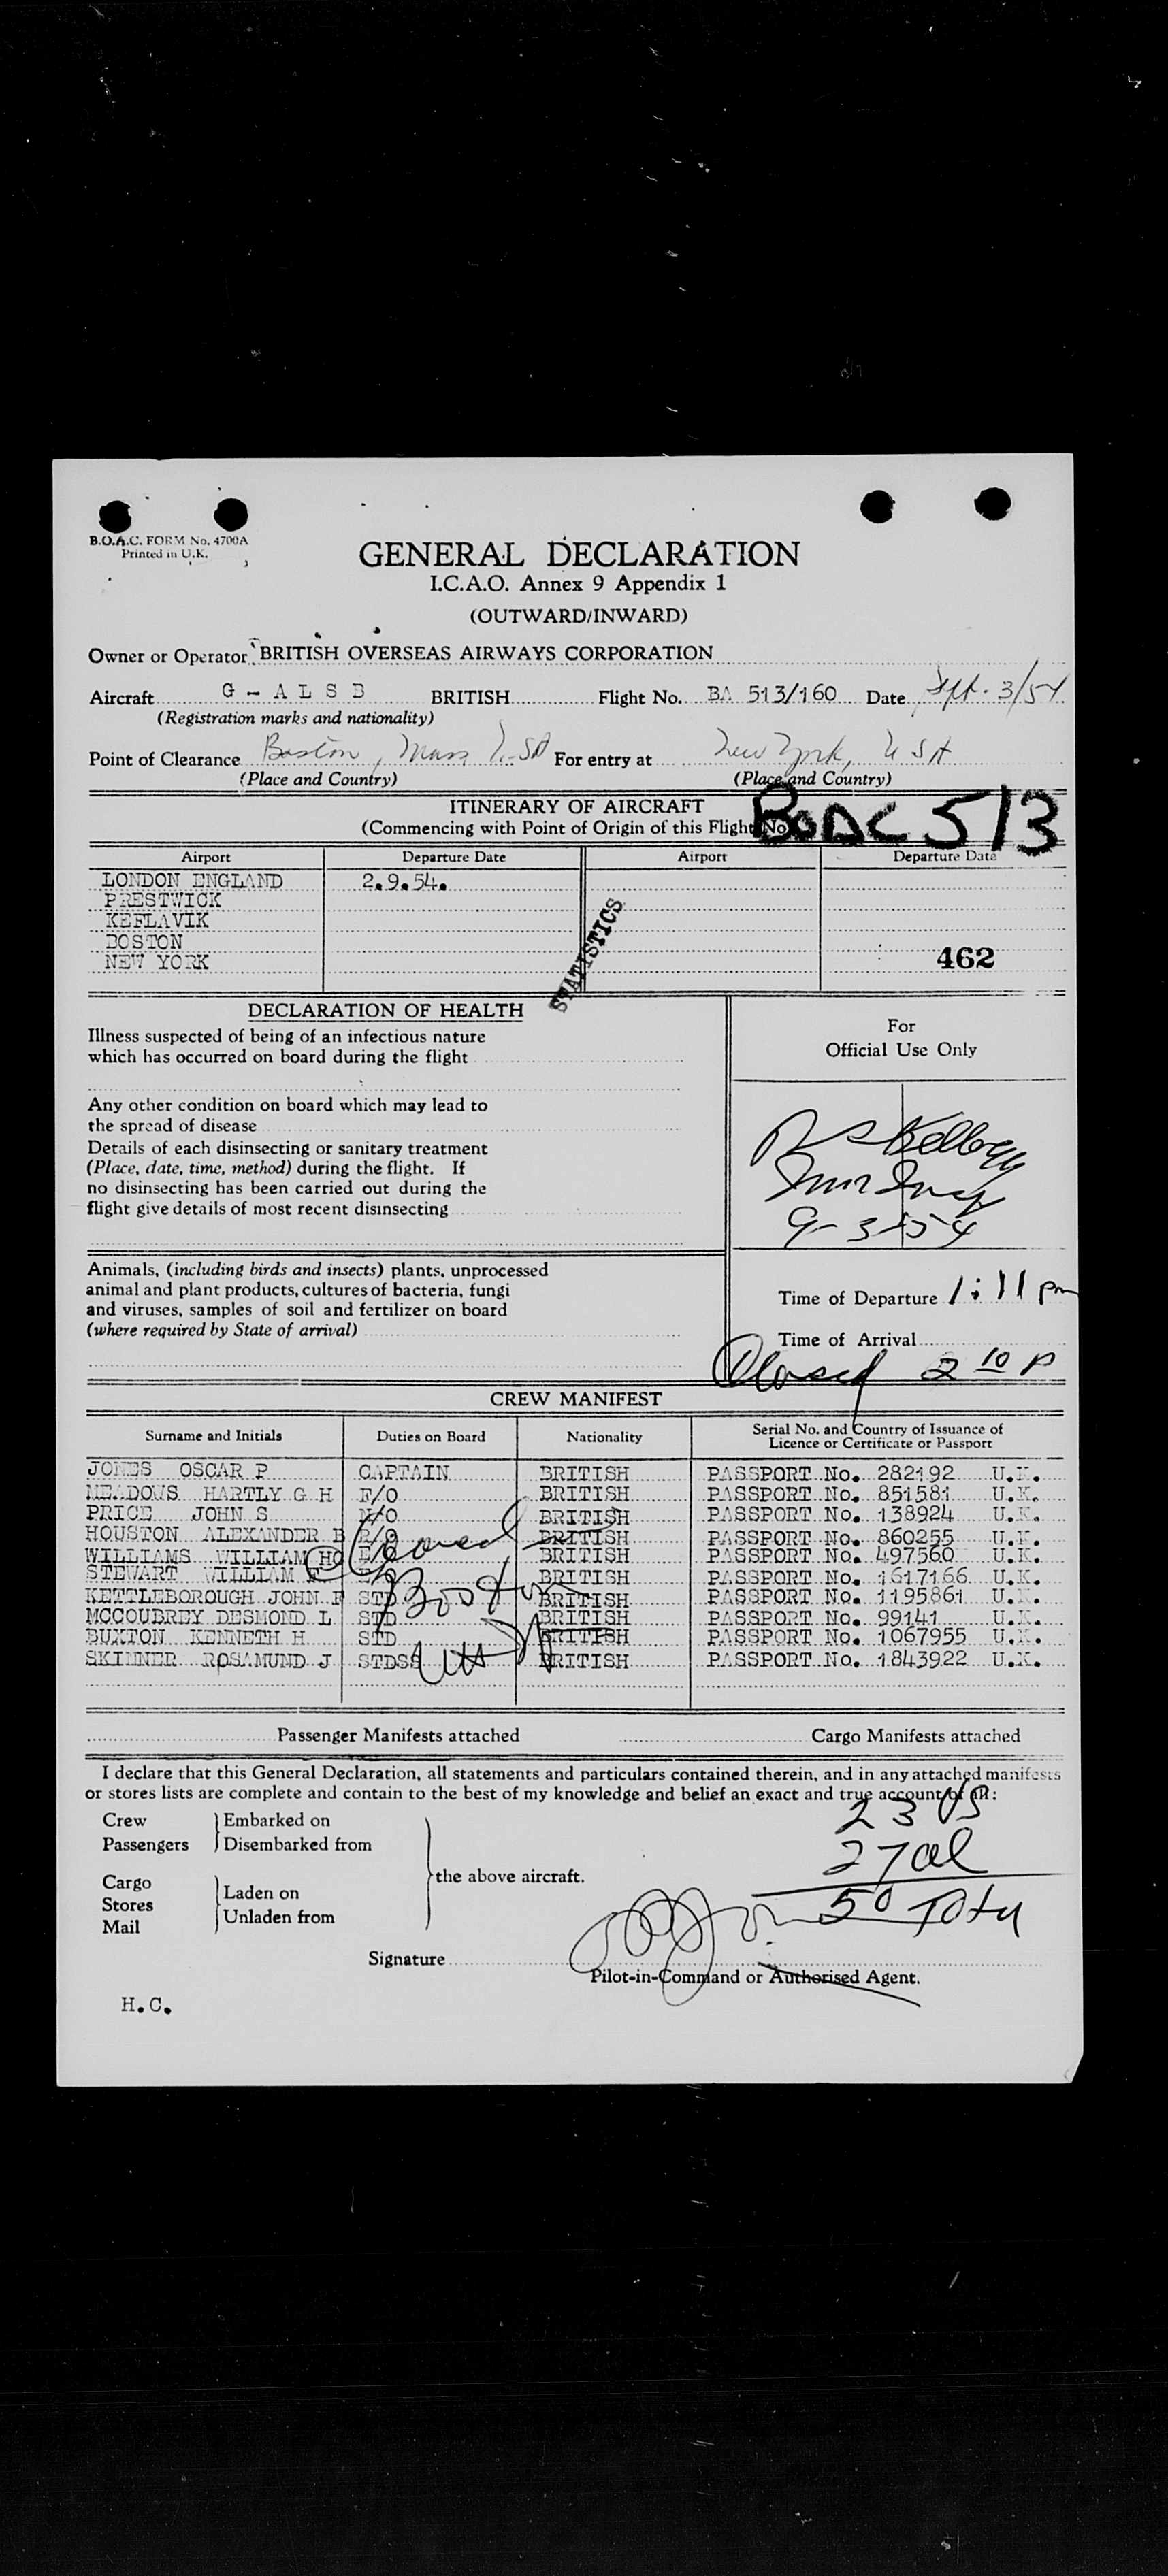 B.O.A.C. FORM No. 4700A
Printed in U.K.
GENERAL DECLARATION
I.C.A.O. Annex 9 Appendix 1
(OUTWARD/INWARD)
Owner or Operator BRITISH OVERSEAS AIRWAYS CORPORATION
Aircraft G - A L S B BRITISH Flight No. BA 513/160 Date Sept. 3/54
(Registration marks and nationality)
Point of Clearance Boston, Mass USA For entry at New York, USA
(Place and Country) (Place and Country)
ITINERARY OF AIRCRAFT
(Commencing with Point of Origin of this Flight No
BOAC 513
Airport Departure Date Airport Departure Date
LONDON ENGLAND 2.9.54.
PRESTWICK
KEFLAVIK
BOSTON
NEW YORK
462
STATISTICS
DECLARATION OF HEALTH
Illness suspected of being of an infectious nature
which has occurred on board during the flight
Any other condition on board which may lead to
the spread of disease
Details of each disinsecting or sanitary treatment
(Place, date, time, method) during the flight. If
no disinsecting has been carried out during the
flight give details of most recent disinsecting
For
Official Use Only
R S Kellogg
Imm Insp
9-3-54
Animals, (including birds and insects) plants, unprocessed
animal and plant products, cultures of bacteria, fungi
and viruses, samples of soil and fertilizer on board
(where required by State of arrival)
Time of Departure 1:11 pm
Time of Arrival
Closed 2 10 P
CREW MANIFEST
Surname and Initials Duties on Board Nationality Serial No. and Country of Issuance of
Licence or Certificate or Passport
JONES OSCAR P CAPTAIN BRITISH PASSPORT No. 282192 U.K.
MEADOWS HARTLY G H F/O BRITISH PASSPORT No. 851581 U.K.
PRICE JOHN S N/O BRITISH PASSPORT No. 138924 U.K.
HOUSTON ALEXANDER B R/O BRITISH PASSPORT No. 860255 U.K.
WILLIAMS WILLIAM HO E/O BRITISH PASSPORT No. 497560 U.K.
STEWART WILLIAM BRITISH PASSPORT No. 1617166 U.K.
KETTLEBOROUGH JOHN F STD BRITISH PASSPORT No. 1195861 U.K.
MCCOUBREY DESMOND L STD BRITISH PASSPORT No. 99141 U.K.
BUXTON KENNETH H STD BRITISH PASSPORT No. 1067955 U.K.
SKINNER ROSAMUND J STDSS BRITISH PASSPORT No. 1843922 U.K.
Boston
Passenger Manifests attached Cargo Manifests attached
I declare that this General Declaration, all statements and particulars contained therein, and in any attached manifests
or stores lists are complete and contain to the best of my knowledge and belief an exact and true account of all:
Crew Embarked on
Passengers Disembarked from
Cargo
Stores
Mail
Laden on
Unladen from
the above aircraft.
23 US
27 al
50 Total
Signature
Pilot-in-Command or Authorised Agent.
H.C.